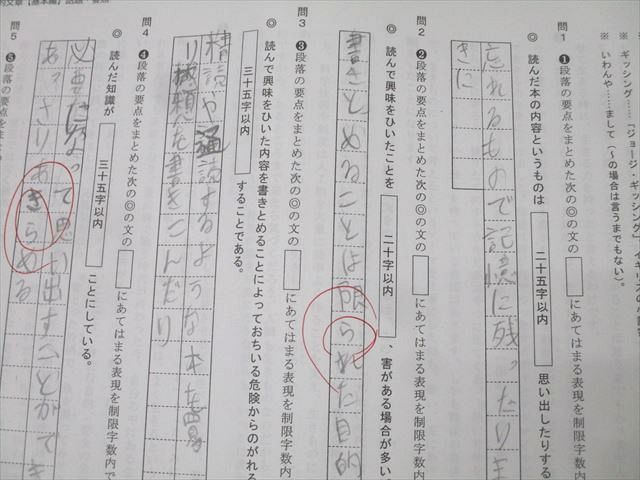 ※ ギッシング……「ジョージ・ギッシング」イギリス
※ いわんや……まして（～の場合は言うまでもない）。
問1 ❶段落の要点をまとめた次の◎の文の にあてはまる表現を制限字数内
◎ 読んだ本の内容というものは 二十五字以内 思い出したりする
忘れるもので記憶に残ったりま
きに
問2 ❷段落の要点をまとめた次の◎の文の にあてはまる表現を制限字数内
◎ 読んで興味をひいたことを 二十字以内 、害がある場合が多い。
書きとめることは限られた目的
問3 ❸段落の要点をまとめた次の◎の文の にあてはまる表現を制限字数内
◎ 読んで興味をひいた内容を書きとめることによっておちいる危険からのがれる
三十五字以内 することである。
精読や通読するような本を
り感想を書きこんだり
問4 ❹段落の要点をまとめた次の◎の文の にあてはまる表現を制限字数内で
◎ 読んだ知識が 三十五字以内 ことにしている。
必要になって思い出すことができ
あっさりあきらめる
問5 ❺段落の要点をま
的文章【基本編】話題・要点